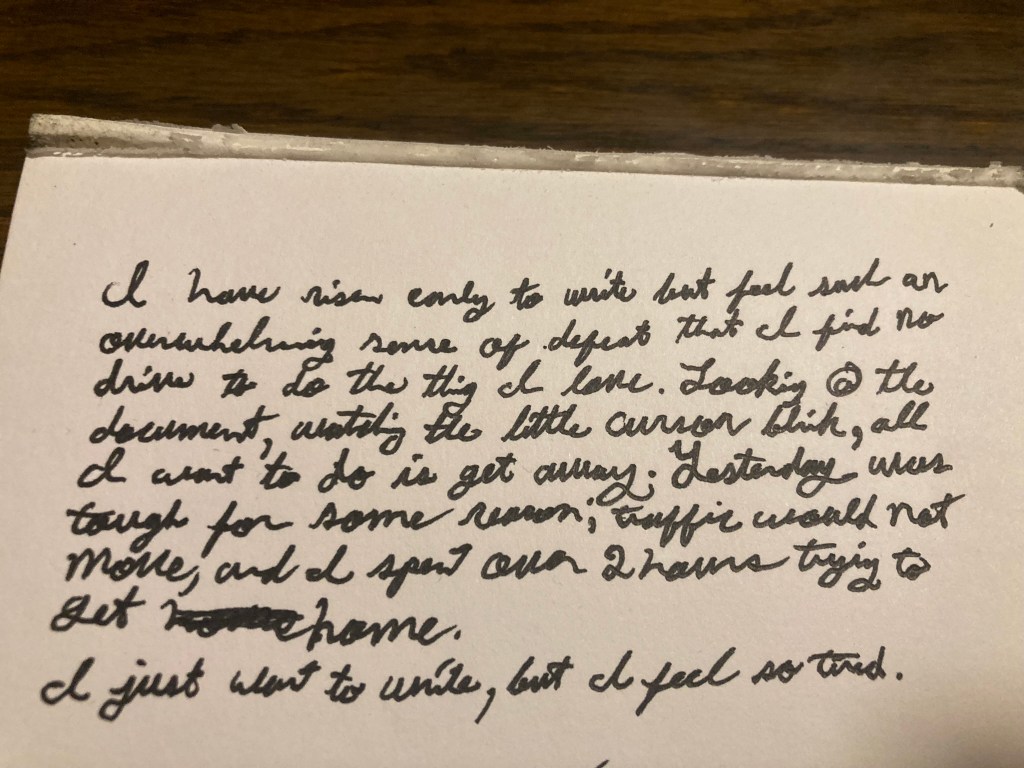 I have risen early to write but feel such an
overwhelming sense of defeat that I find no
drive to do the thig I love. Looking @ the
document, watching the little cursor blink, all
I want to do is get away. Yesterday was
tough for some reason; traffic would not
move, and I spent over 2 hours trying to
get home.
I just want to write, but I feel so tired.